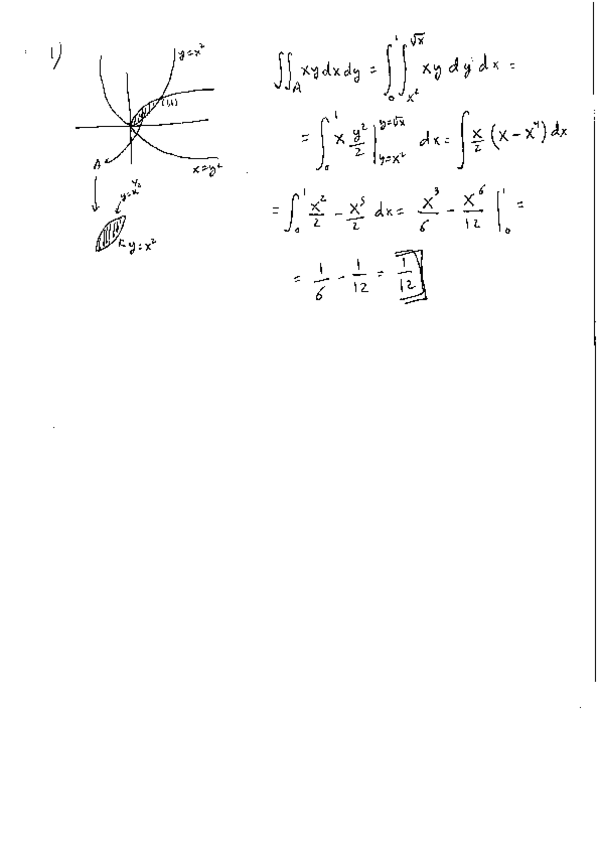 1)
y=x²
(1,1)
A
x=y²
y=x^½
y=x²
∬_A xy dx dy = ∫₀¹ ∫_{x²}^{√x} xy dy dx =
= ∫₀¹ x y²/2 |_{y=x²}^{y=√x} dx = ∫ x/2 (x - x⁴) dx
= ∫₀¹ x²/2 - x⁵/2 dx = x³/6 - x⁶/12 |₀¹ =
= 1/6 - 1/12 = 1/12